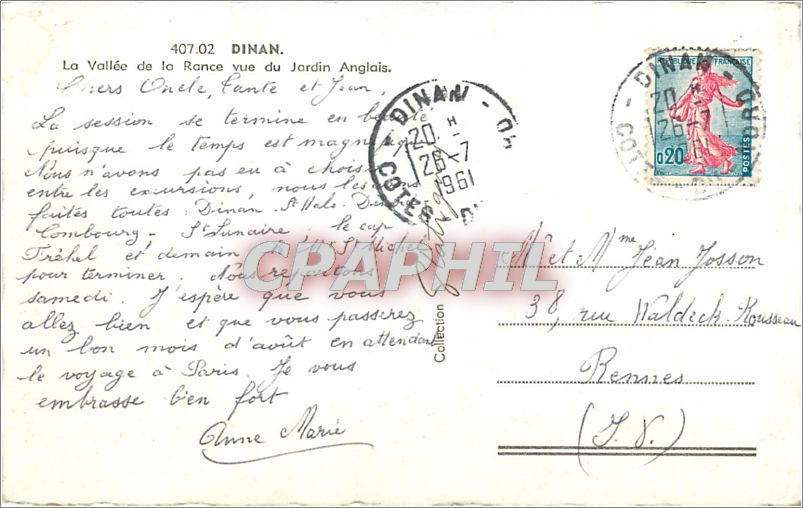 407.02 DINAN.
La Vallée de la Rance vue du Jardin Anglais.
Chers Oncle, Tante et Jean,
La session se termine en beauté
puisque le temps est magnifique
Nous n'avons pas eu à choisir
entre les excursions, nous les avons
faites toutes : Dinan - St Malo - Dinard
Combourg - St Lunaire - le cap
Fréhel et demain le Mt St Michel
pour terminer. Nous repartons
samedi. J'espère que vous
allez bien et que vous passerez
un bon mois d'août en attendant
le voyage à Paris. Je vous
embrasse bien fort
Anne Marie
Collection
DINAN
20 H
26-7
1961
COTES
REPUBLIQUE FRANÇAISE
0,20
POSTES
DINAN
20 H
26-7
COT
NORD
CPAPHIL
Mr et Mme Jean Josson
38, rue Waldeck-Rousseau
Rennes
(I.V.)